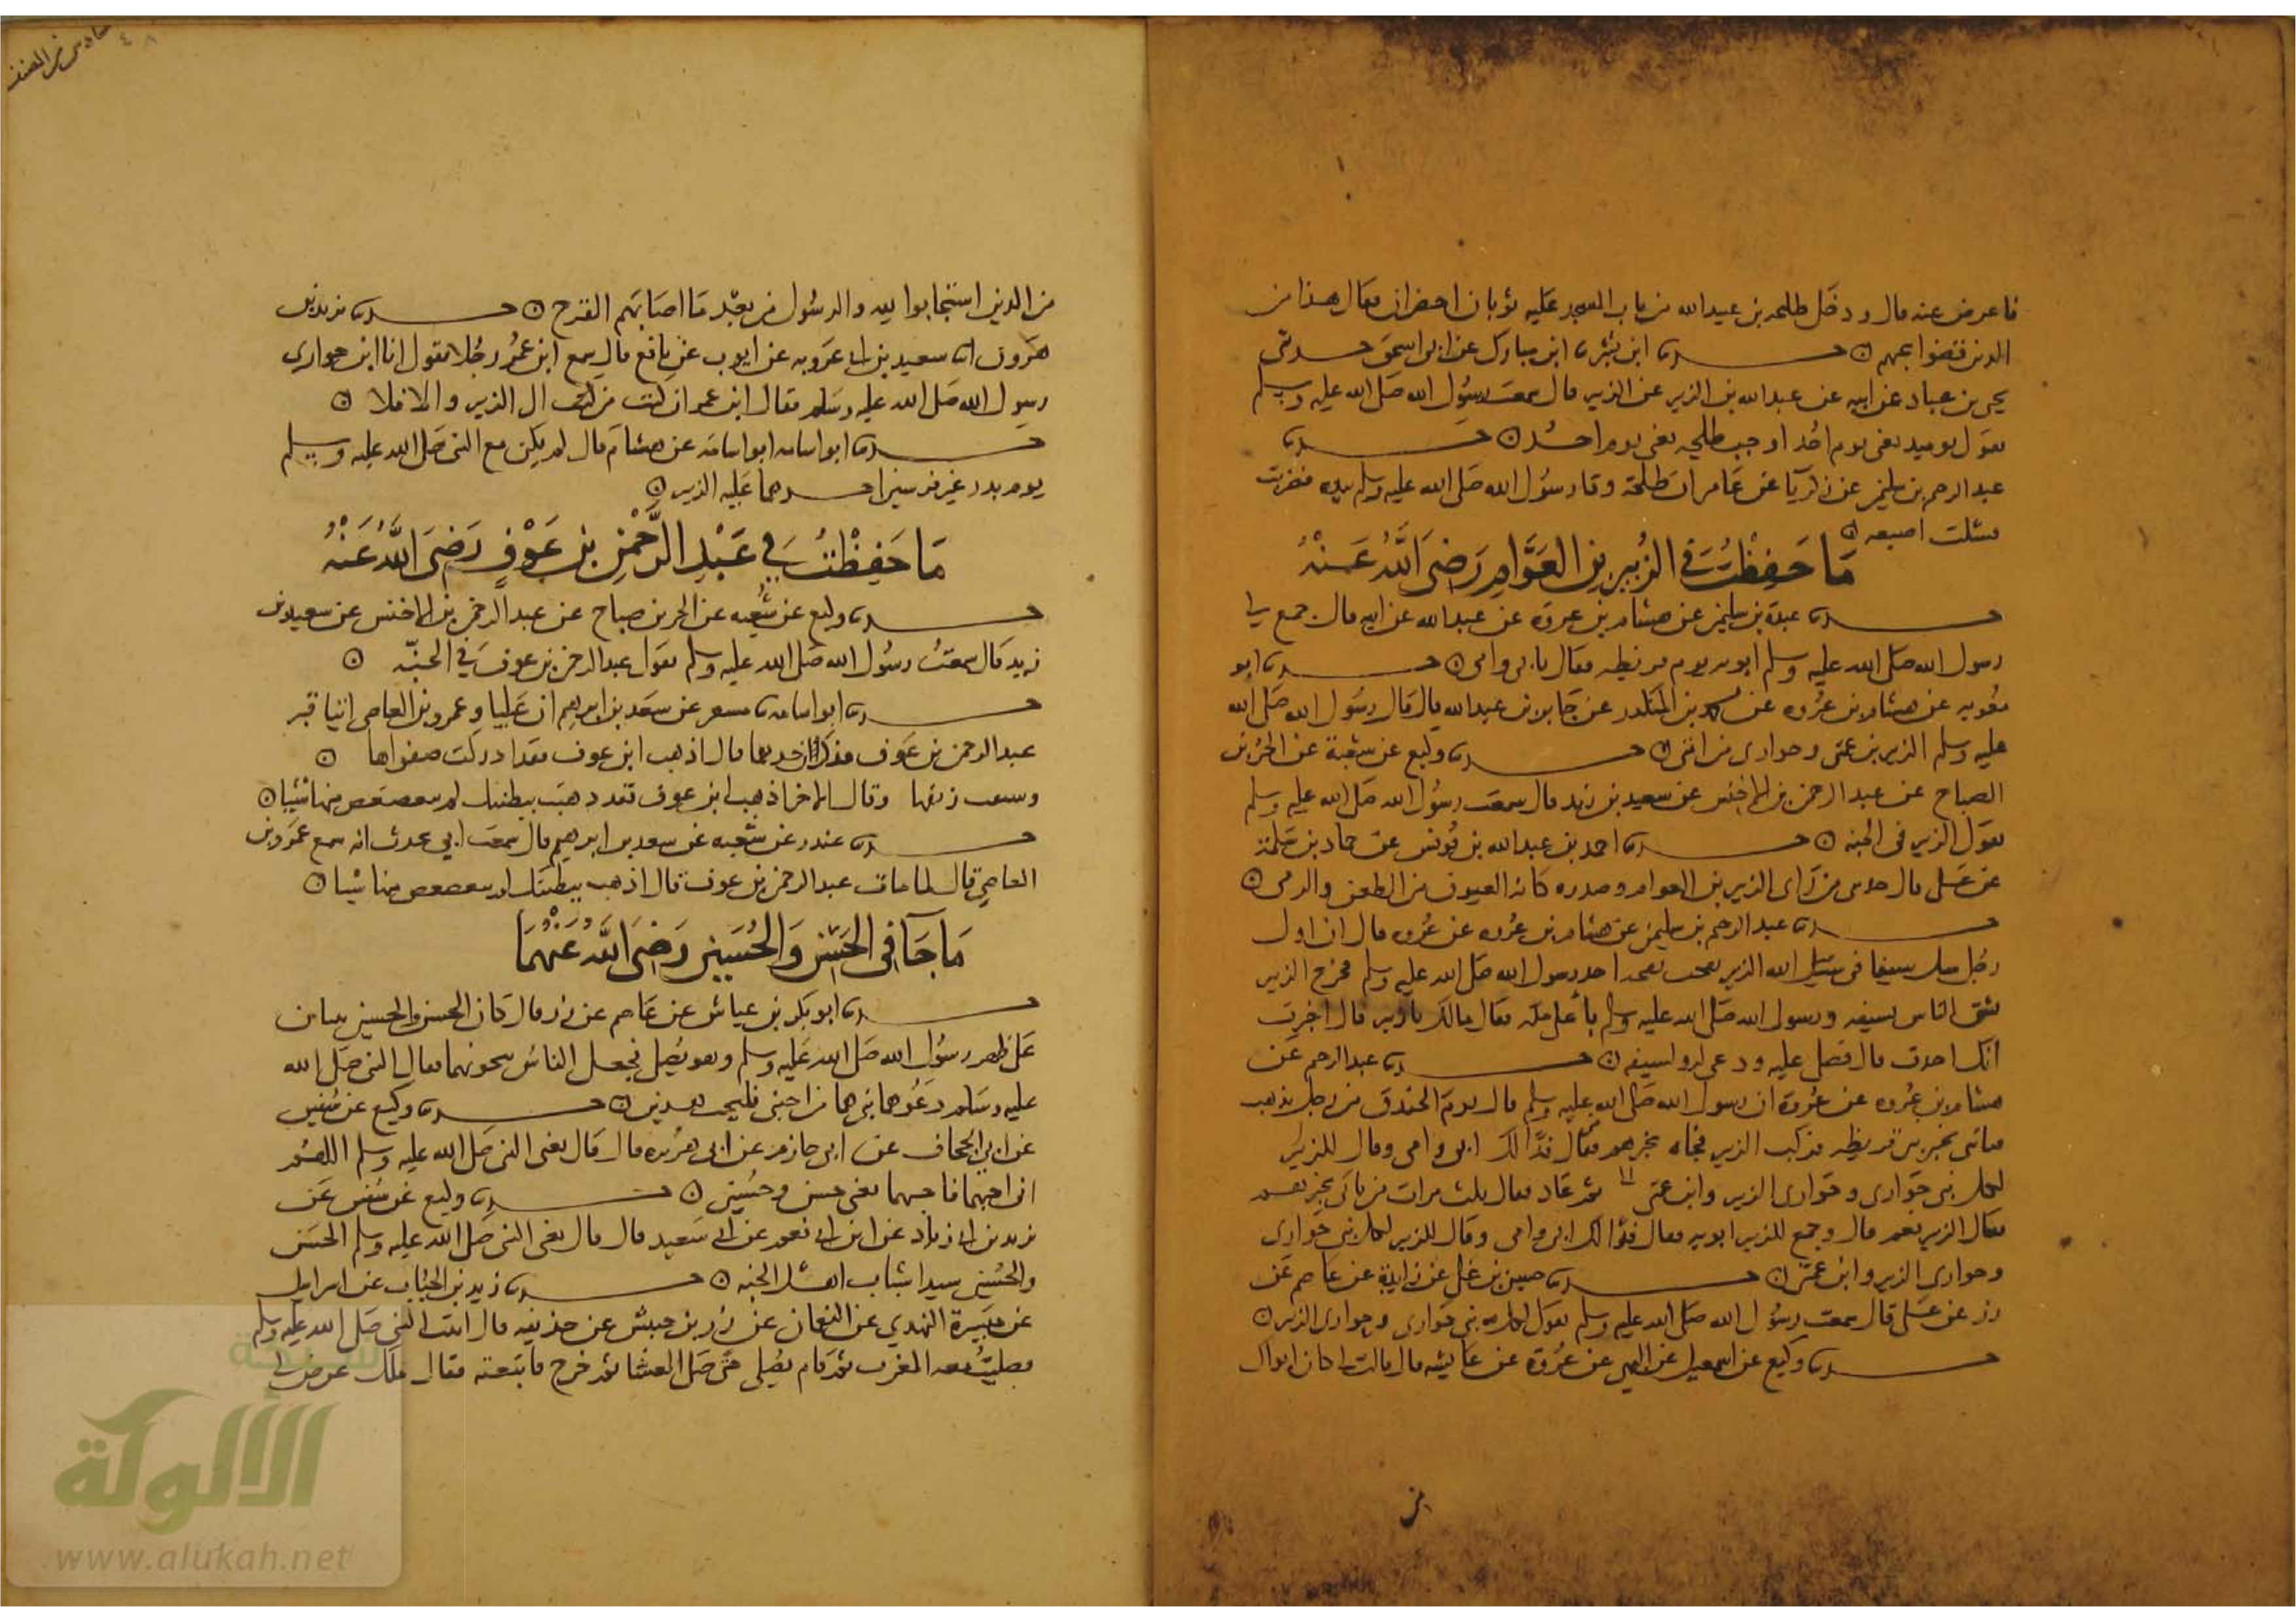 فاعرض عنه قال ودخل طلحه بن عبيد الله من باب المسجد عليه ثوبان اخضران فقال هذا من
الذين قضوا نحبهم ه حدثنا ابن بشر ابن مبارك عن ابن اسحق حدثني
يحيى بن عباد عن ابيه عن عبد الله بن الزبير عن الزبير قال سمعت رسول الله صلى الله عليه وسلم
يقول يوميذ يعني يوم احد اوجب طلحه يعني يوم احد ه حدثنا
عبد الرحيم بن سليمن عن زكريا عن عامر ان طلحة وقا رسول الله صلى الله عليه وسلم بيده فضربت
فشلت اصبعه ه
مَا حَفِظْتُ في الزُّبَيْرِ بنِ العَوَّامِ رَضِيَ اللَّهُ عَنْهُ
حدثنا عبدة بن سليمن عن هشام بن عروه عن عبد الله عن ابيه قال جمع لي
رسول الله صلى الله عليه وسلم ابويه يوم قريظه فقال بابي وامي ه حدثنا ابو
معويه عن هشام بن عروه عن محمد بن المنكدر عن جابر بن عبد الله قال قال رسول الله صلى الله
عليه وسلم الزبير بن عمتي وحواري من امتي ه حدثنا وكيع عن شعبة عن الحر بن
الصياح عن عبد الرحمن بن الاخنس عن سعيد بن زيد قال سمعت رسول الله صلى الله عليه وسلم
يقول الزبير في الجنه ه حدثنا احمد بن عبد الله بن يونس عن حماد بن سلمة
عن علي قال حدثني من راى الزبير بن العوام وصدره كانه العيون من الطعن والرمي ه
حدثنا عبد الرحيم بن سليمن عن هشام بن عروه عن عروه قال ان اول
رجل سل سيفا في سبيل الله الزبير نفحت نفحه اخذ رسول الله صلى الله عليه وسلم فخرج الزبير
يشق الناس بسيفه ورسول الله صلى الله عليه وسلم بأعلى مكه فقال مالك يا زبير قال اخبرت
انك اخذت قال فصلى عليه ودعى له ولسيفه ه حدثنا عبد الرحيم عن
هشام بن عروه عن عروة ان رسول الله صلى الله عليه وسلم قال يوم الخندق من رجل يذهب
فياتي بخبر بني قريظه فركب الزبير فجاه بخبرهم فقال فداك ابي وامي وقال للزبير
لكل نبي حواري وحواري الزبير وابن عمتي ثم عاد فقال ثلث مرات من ياتي بخبرهم
فقال الزبير نعم قال وجمع للزبير ابويه فقال فداك ابي وامي وقال للزبير لكل نبي حواري
وحواري الزبير وابن عمتي ه حدثنا حسين بن علي عن زايدة عن عاصم عن
زر عن علي قال سمعت رسول الله صلى الله عليه وسلم يقول لكل نبي حواري وحواري الزبير ه
حدثنا وكيع عن اسمعيل عن البهي عن عروة عن عايشه قال قالت كان ابواك
من
من الذين استجابوا لله والرسول من بعد ما اصابهم القرح ه حدثنا يزيد بن
هرون انا سعيد بن ابي عروبه عن ايوب عن نافع قال سمع ابن عمر رجلا يقول انا ابن حواري
رسول الله صلى الله عليه وسلم فقال ابن عمر ان كنت من ال الزبير والا فلا ه
حدثنا ابو اسامه ابو اسامه عن هشام قال لم يكن مع النبي صلى الله عليه وسلم
يوم بدر غير فرسين احدهما عليه الزبير ه
مَا حَفِظْتُ فِي عَبْدِ الرَّحْمٰنِ بنِ عَوْفٍ رَضِيَ اللَّهُ عَنْهُ
حدثنا وكيع عن شعبه عن الحر بن صياح عن عبد الرحمن بن الاخنس عن سعيد بن
زيد قال سمعت رسول الله صلى الله عليه وسلم يقول عبد الرحمن بن عوف في الجنّه ه
حدثنا ابو اسامه مسعر عن سعد بن ابرهيم ان عليا وعمرو بن العاص اتيا قبر
عبد الرحمن بن عوف فذكر ان احدهما قال اذهب ابن عوف فقد ادركت صفوها ه
وسبقت رنقها وقال الاخر اذهب ابن عوف فقد ذهبت ببطنتك لم يتغضغض منها شيا ه
حدثنا غندر عن شعبه عن سعد بن ابرهيم قال سمعت ابي يحدث انه سمع عمرو بن
العاصي قال لما مات عبد الرحمن بن عوف قال اذهب ببطنتك لم يتغضغض منها شيا ه
مَا جَآ في الحَسَنِ وَالحُسَيْنِ رَضِيَ اللَّهُ عَنْهُمَا
حدثنا ابو بكر بن عياش عن عاصم عن زر قال كان الحسن والحسين يثبان
على ظهر رسول الله صلى الله عليه وسلم وهو يُصلي فجعل الناس ينحونهما فقال النبي صلى الله
عليه وسلم دعوهما بابي هما من احبني فليحب هذين ه حدثنا وكيع عن سفين
عن ابي الجحاف عن ابي حازم عن ابي هريره قال قال يعني النبي صلى الله عليه وسلم اللهم
اني احبهما فاحبهما يعني حسن وحسين ه حدثنا وكيع عن سفين عن
يزيد بن ابي زياد عن ابن ابي نعم عن ابي سعيد قال قال يعني النبي صلى الله عليه وسلم الحسن
والحسين سيدا شباب اهل الجنه ه حدثنا زيد بن الحباب عن اسرايل
عن ميسرة النهدي عن المنهال عن زر بن حبيش عن حذيفه قال اتيت النبي صلى الله عليه وسلم
فصليت معه المغرب ثم قام يصلي حتى صلى العشا ثم خرج فاتبعته فقال ملك عرض لي
شبكة
الألوكة
www.alukah.net